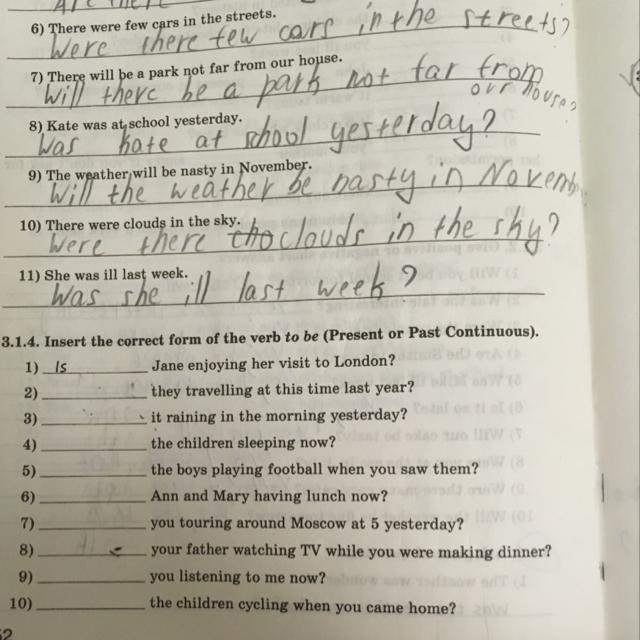 6) There were few cars in the streets.
Were there few cars in the streets?
7) There will be a park not far from our house.
Will there be a park not far from
our house?
8) Kate was at school yesterday.
Was kate at school yesterday?
9) The weather will be nasty in November.
Will the weather be nasty in Novemb
10) There were clouds in the sky.
Were there clouds in the sky?
11) She was ill last week.
Was she ill last week?
3.1.4. Insert the correct form of the verb to be (Present or Past Continuous).
1) Is Jane enjoying her visit to London?
2) they travelling at this time last year?
3) it raining in the morning yesterday?
4) the children sleeping now?
5) the boys playing football when you saw them?
6) Ann and Mary having lunch now?
7) you touring around Moscow at 5 yesterday?
8) your father watching TV while you were making dinner?
9) you listening to me now?
10) the children cycling when you came home?